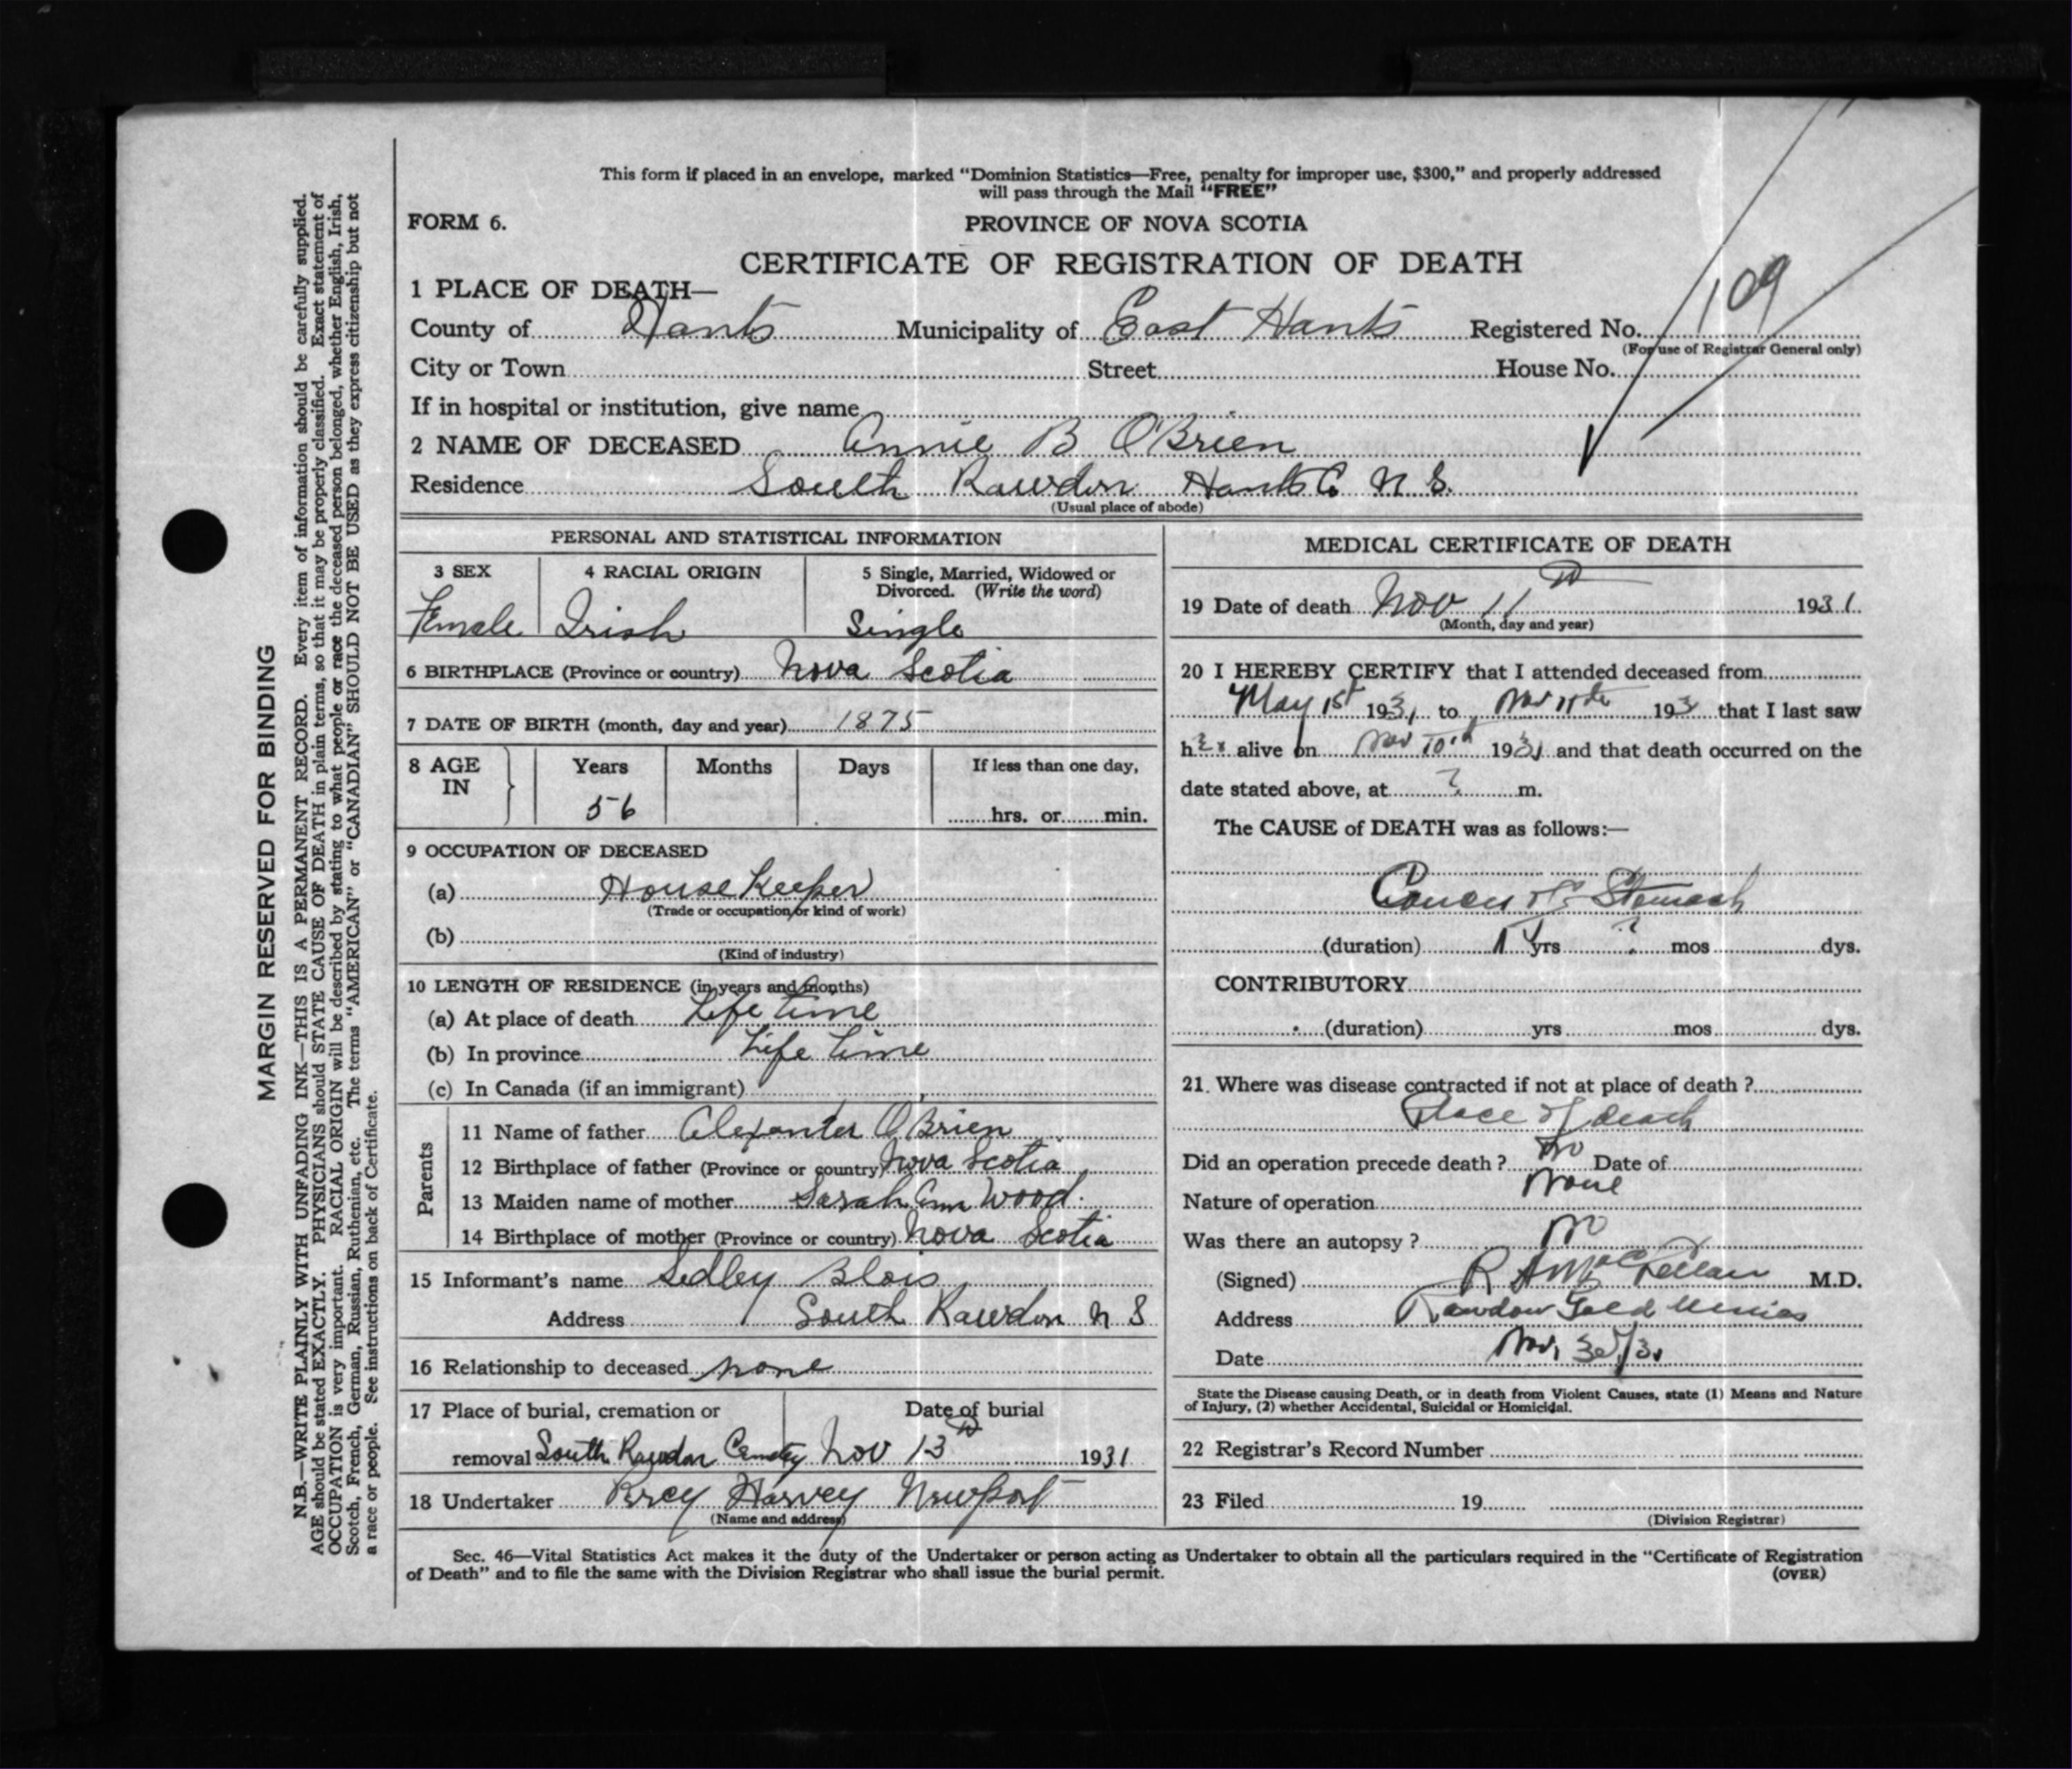 This form if placed in an envelope, marked "Dominion Statistics—Free, penalty for improper use, $300," and properly addressed
will pass through the Mail "FREE"
FORM 6.
PROVINCE OF NOVA SCOTIA
CERTIFICATE OF REGISTRATION OF DEATH
1 PLACE OF DEATH—
County of Hants Municipality of East Hants Registered No. 109
(For use of Registrar General only)
City or Town Street House No.
If in hospital or institution, give name
2 NAME OF DECEASED Annie B O'Brien
Residence South Rawdon Hants Co N S.
(Usual place of abode)
PERSONAL AND STATISTICAL INFORMATION
3 SEX 4 RACIAL ORIGIN 5 Single, Married, Widowed or
Divorced. (Write the word)
Female Irish Single
6 BIRTHPLACE (Province or country) Nova Scotia
7 DATE OF BIRTH (month, day and year) 1875
8 AGE Years Months Days If less than one day,
IN
56
hrs. or min.
9 OCCUPATION OF DECEASED
(a) House Keeper
(Trade or occupation or kind of work)
(b)
(Kind of industry)
10 LENGTH OF RESIDENCE (in years and months)
(a) At place of death Life time
(b) In province Life time
(c) In Canada (if an immigrant)
Parents
11 Name of father Alexander O'Brien
12 Birthplace of father (Province or country) Nova Scotia
13 Maiden name of mother Sarah Ann Wood.
14 Birthplace of mother (Province or country) Nova Scotia
15 Informant's name Sedley Blois
Address South Rawdon N S
16 Relationship to deceased none
17 Place of burial, cremation or Date of burial
removal South Rawdon Cemetry Nov 13th 1931
18 Undertaker Percy Harvey Newport
(Name and address)
MEDICAL CERTIFICATE OF DEATH
19 Date of death Nov 11th 1931
(Month, day and year)
20 I HEREBY CERTIFY that I attended deceased from
May 1st 1931 to Nov 11th 193 that I last saw
her alive on Nov 10th 1931 and that death occurred on the
date stated above, at ? m.
The CAUSE of DEATH was as follows:—
Cancer of Stomach
(duration) 1 yrs ? mos dys.
CONTRIBUTORY
(duration) yrs mos dys.
21. Where was disease contracted if not at place of death ?
Place of death
Did an operation precede death ? No Date of
Nature of operation None
Was there an autopsy ? No
(Signed) R A McClellan M.D.
Address Rawdon Gold Mines
Date Nov. 30/31
State the Disease causing Death, or in death from Violent Causes, state (1) Means and Nature
of Injury, (2) whether Accidental, Suicidal or Homicidal.
22 Registrar's Record Number
23 Filed 19
(Division Registrar)
Sec. 46—Vital Statistics Act makes it the duty of the Undertaker or person acting as Undertaker to obtain all the particulars required in the "Certificate of Registration
of Death" and to file the same with the Division Registrar who shall issue the burial permit. (OVER)
MARGIN RESERVED FOR BINDING
N.B.—WRITE PLAINLY WITH UNFADING INK—THIS IS A PERMANENT RECORD. Every item of information should be carefully supplied.
AGE should be stated EXACTLY. PHYSICIANS should STATE CAUSE OF DEATH in plain terms, so that it may be properly classified. Exact statement of
OCCUPATION is very important. RACIAL ORIGIN will be described by stating to what people or race the deceased person belonged, whether English, Irish,
Scotch, French, German, Russian, Ruthenian, etc. The terms "AMERICAN" or "CANADIAN" SHOULD NOT BE USED as they express citizenship but not
a race or people. See instructions on back of Certificate.